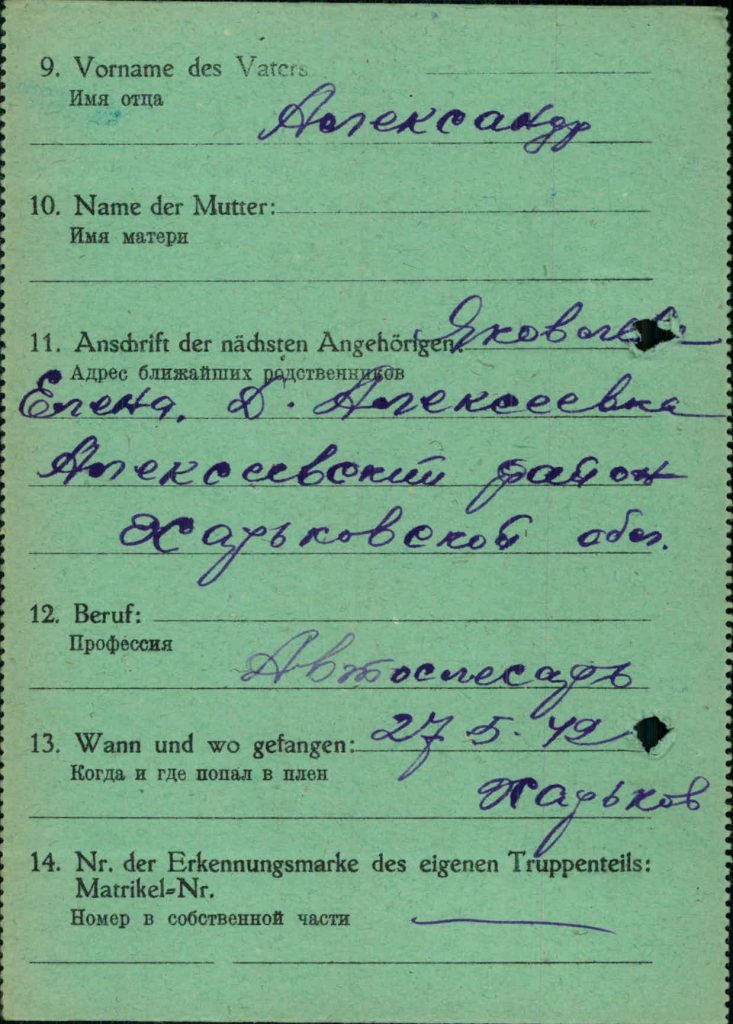 9. Vorname des Vaters
Имя отца
Александр
10. Name der Mutter:
Имя матери
11. Anschrift der nächsten Angehörigen: Яковлева
Адрес ближайших родственников
Елена, Д. Алексеевка
Алексеевский район
Харьковской обл.
12. Beruf:
Профессия
Автослесарь
13. Wann und wo gefangen: 27.5.42
Когда и где попал в плен
Харьков
14. Nr. der Erkennungsmarke des eigenen Truppenteils:
Matrikel=Nr.
Номер в собственной части